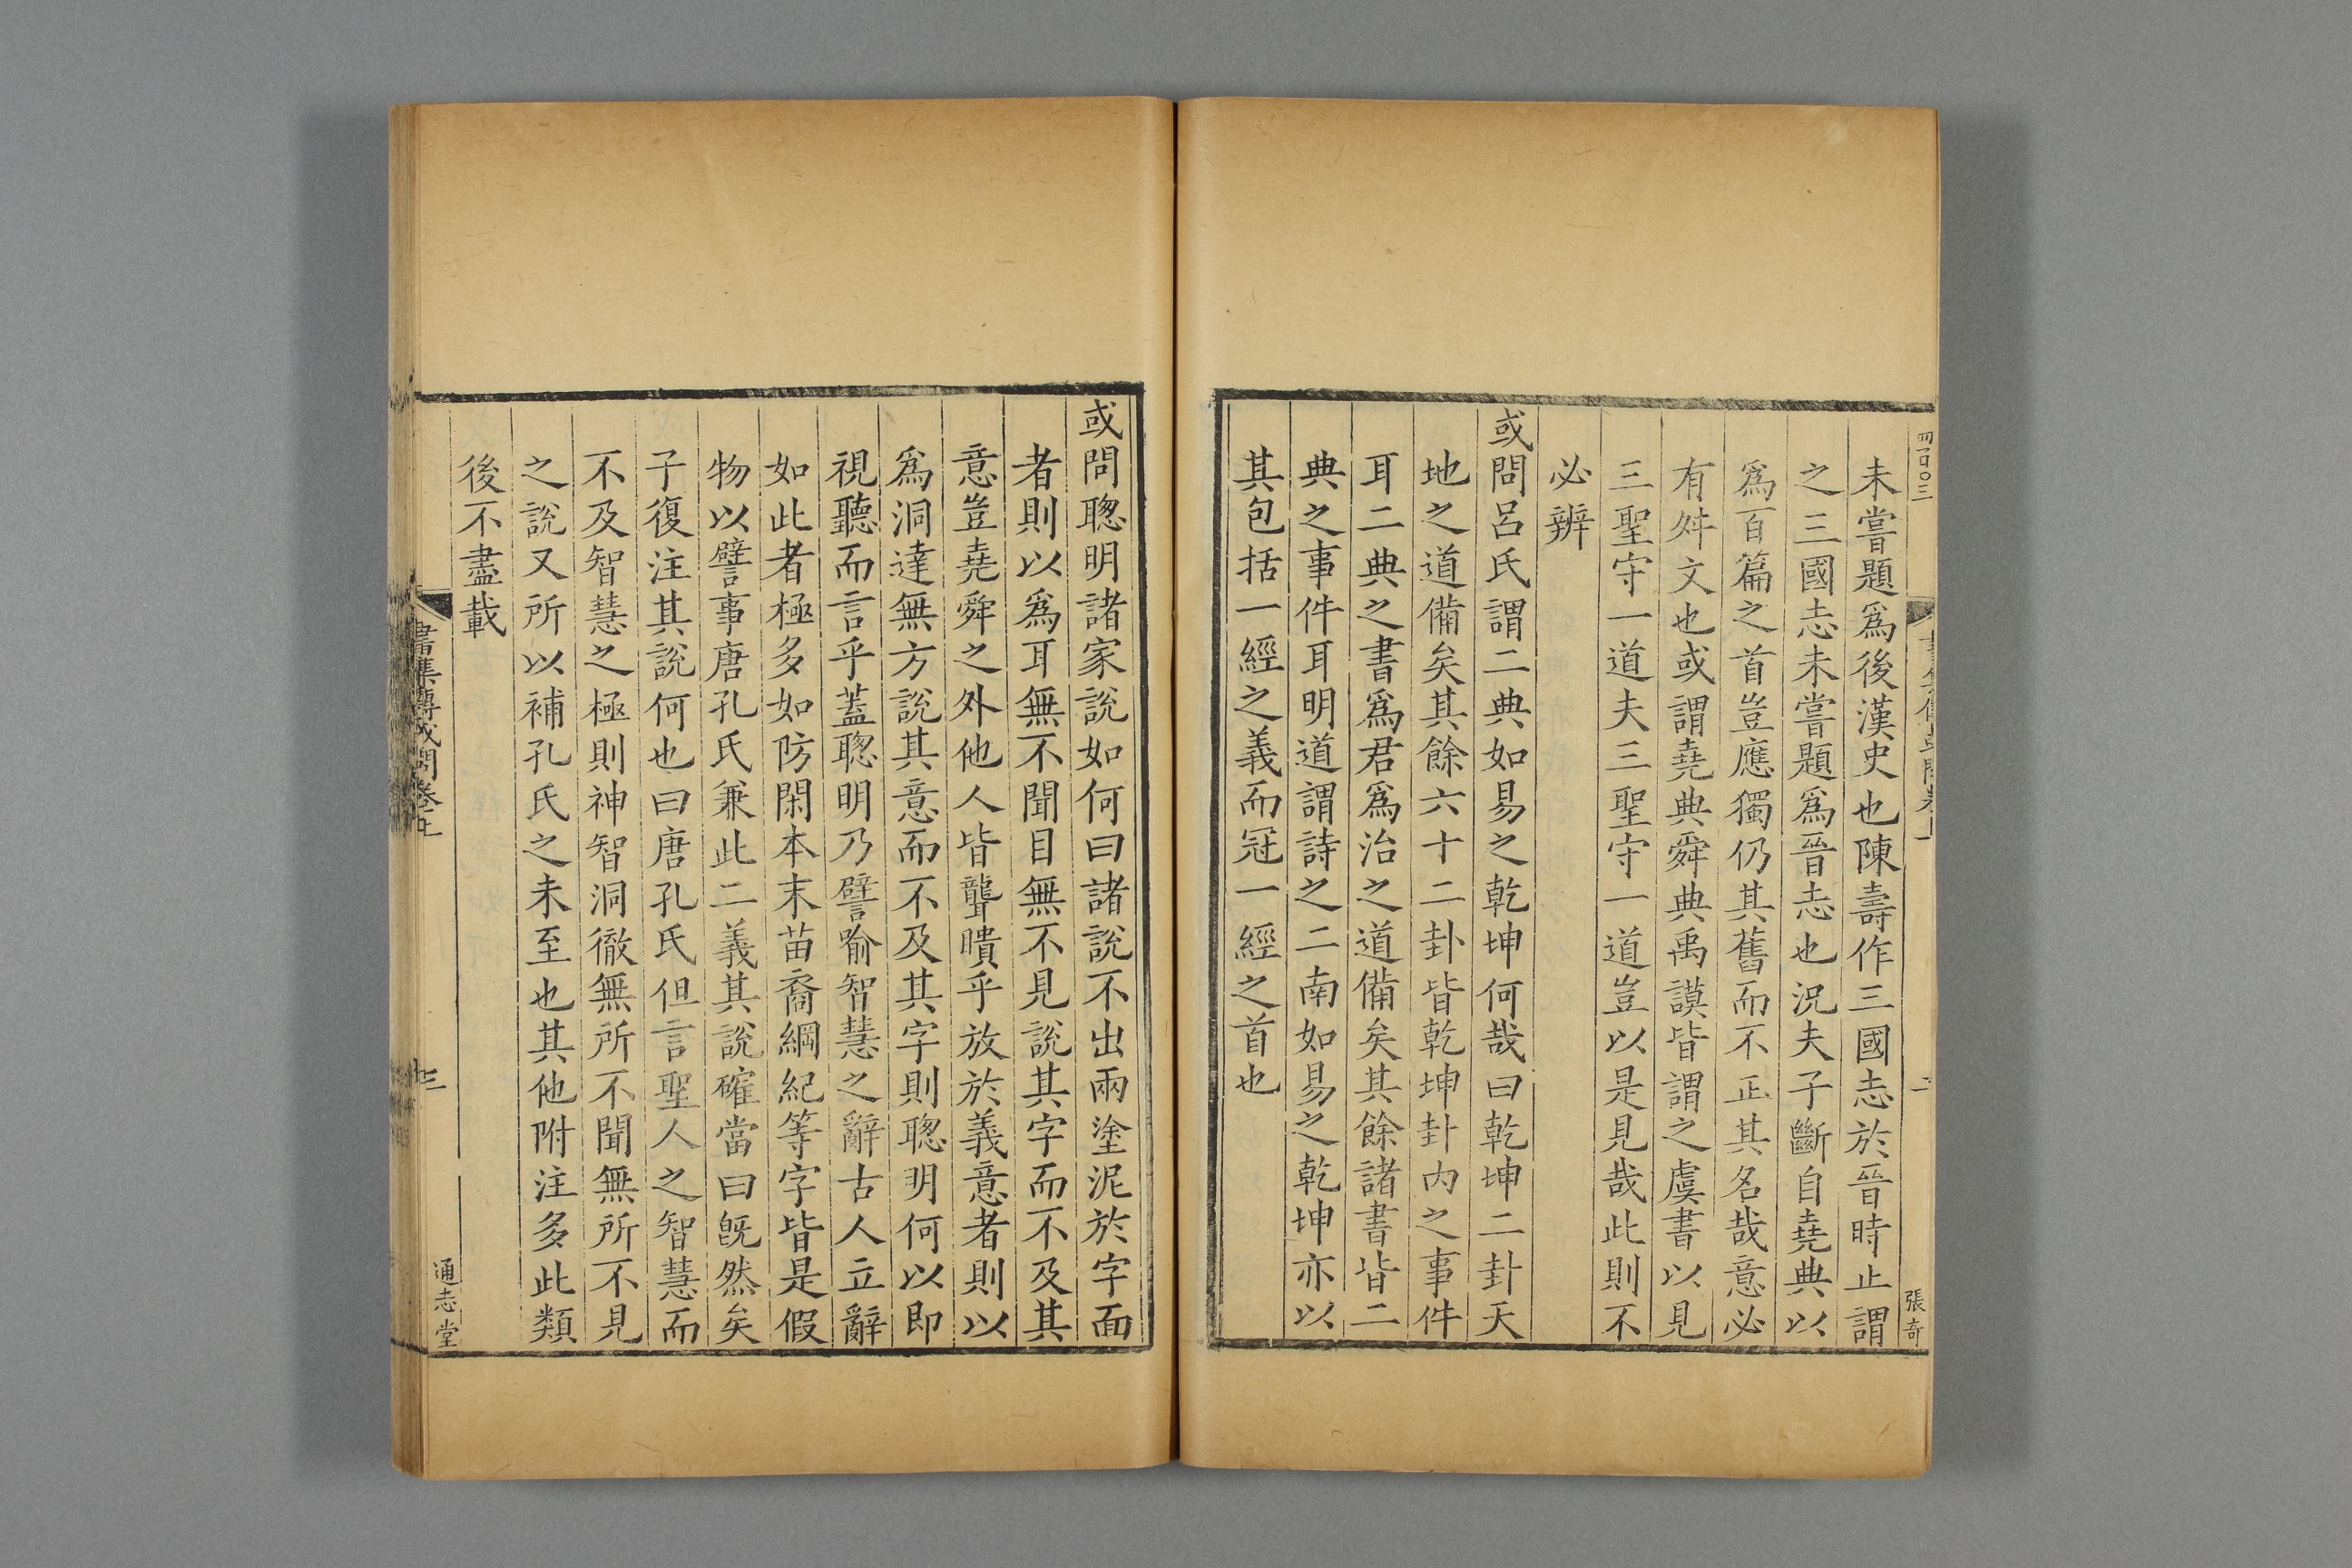 四百〇三
張奇
未嘗題爲後漢史也陳壽作三國志於晉時止謂
之三國志未嘗題爲晉志也況夫子斷自堯典以
爲百篇之首豈應獨仍其舊而不正其名哉意必
有舛文也或謂堯典舜典禹謨皆謂之虞書以見
三聖守一道夫三聖守一道豈以是見哉此則不
必辨
或問呂氏謂二典如易之乾坤何哉曰乾坤二卦天
地之道備矣其餘六十二卦皆乾坤卦內之事件
耳二典之書爲君爲治之道備矣其餘諸書皆二
典之事件耳明道謂詩之二南如易之乾坤亦以
其包括一經之義而冠一經之首也
或問聰明諸家說如何曰諸說不出兩塗泥於字面
者則以爲耳無不聞目無不見說其字而不及其
意豈堯舜之外他人皆聾瞶乎放於義意者則以
爲洞達無方說其意而不及其字則聰明何以即
視聽而言乎蓋聰明乃譬喻智慧之辭古人立辭
如此者極多如防閑本末苗裔綱紀等字皆是假
物以譬事唐孔氏兼此二義其說確當曰旣然矣
子復注其說何也曰唐孔氏但言聖人之智慧而
不及智慧之極則神智洞徹無所不聞無所不見
之說又所以補孔氏之未至也其他附注多此類
後不盡載
書集傳或問卷上
三
通志堂